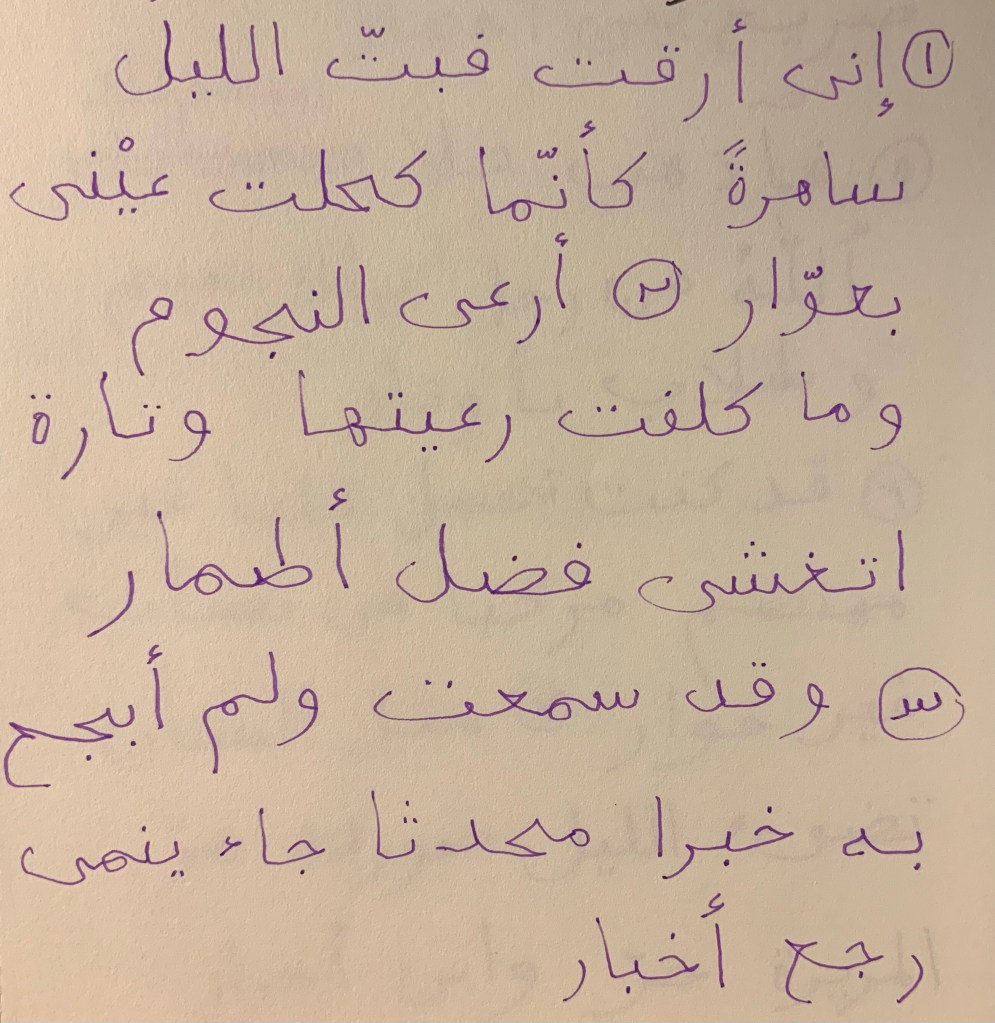 ① إنى أرقت فبتّ الليل
ساهرةً كأنّما كحلت عيْنى
بعوّار ② أرعى النجوم
وما كلفت رعيتها وتارة
اتغشى فضل أطمار
③ وقد سمعت ولم أبجح
به خبرا محدثا جاء ينمى
رجع أخبار